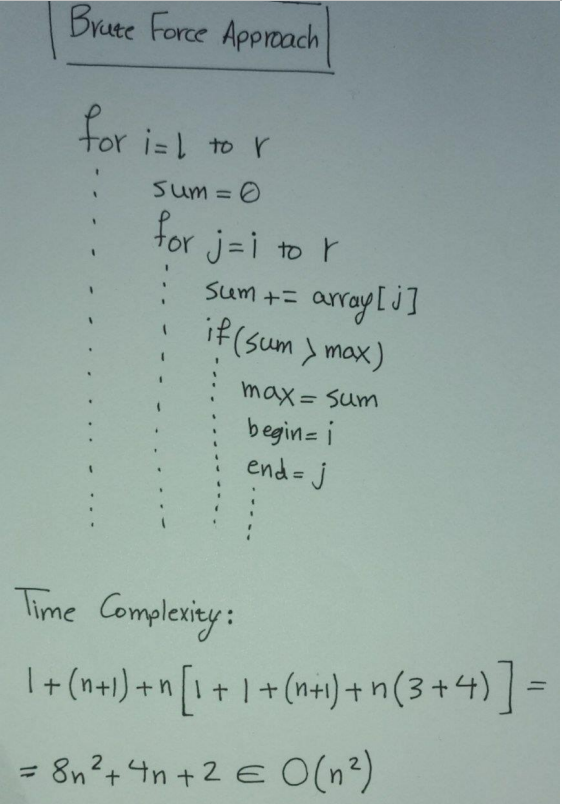 Brute Force Approach
for i=l to r
sum = 0
for j=i to r
sum += array[j]
if(sum > max)
max = sum
begin= i
end= j
Time Complexity:
1+(n+1)+n[1+1+(n+1)+n(3+4)] =
= 8n²+4n+2 ∈ O(n²)